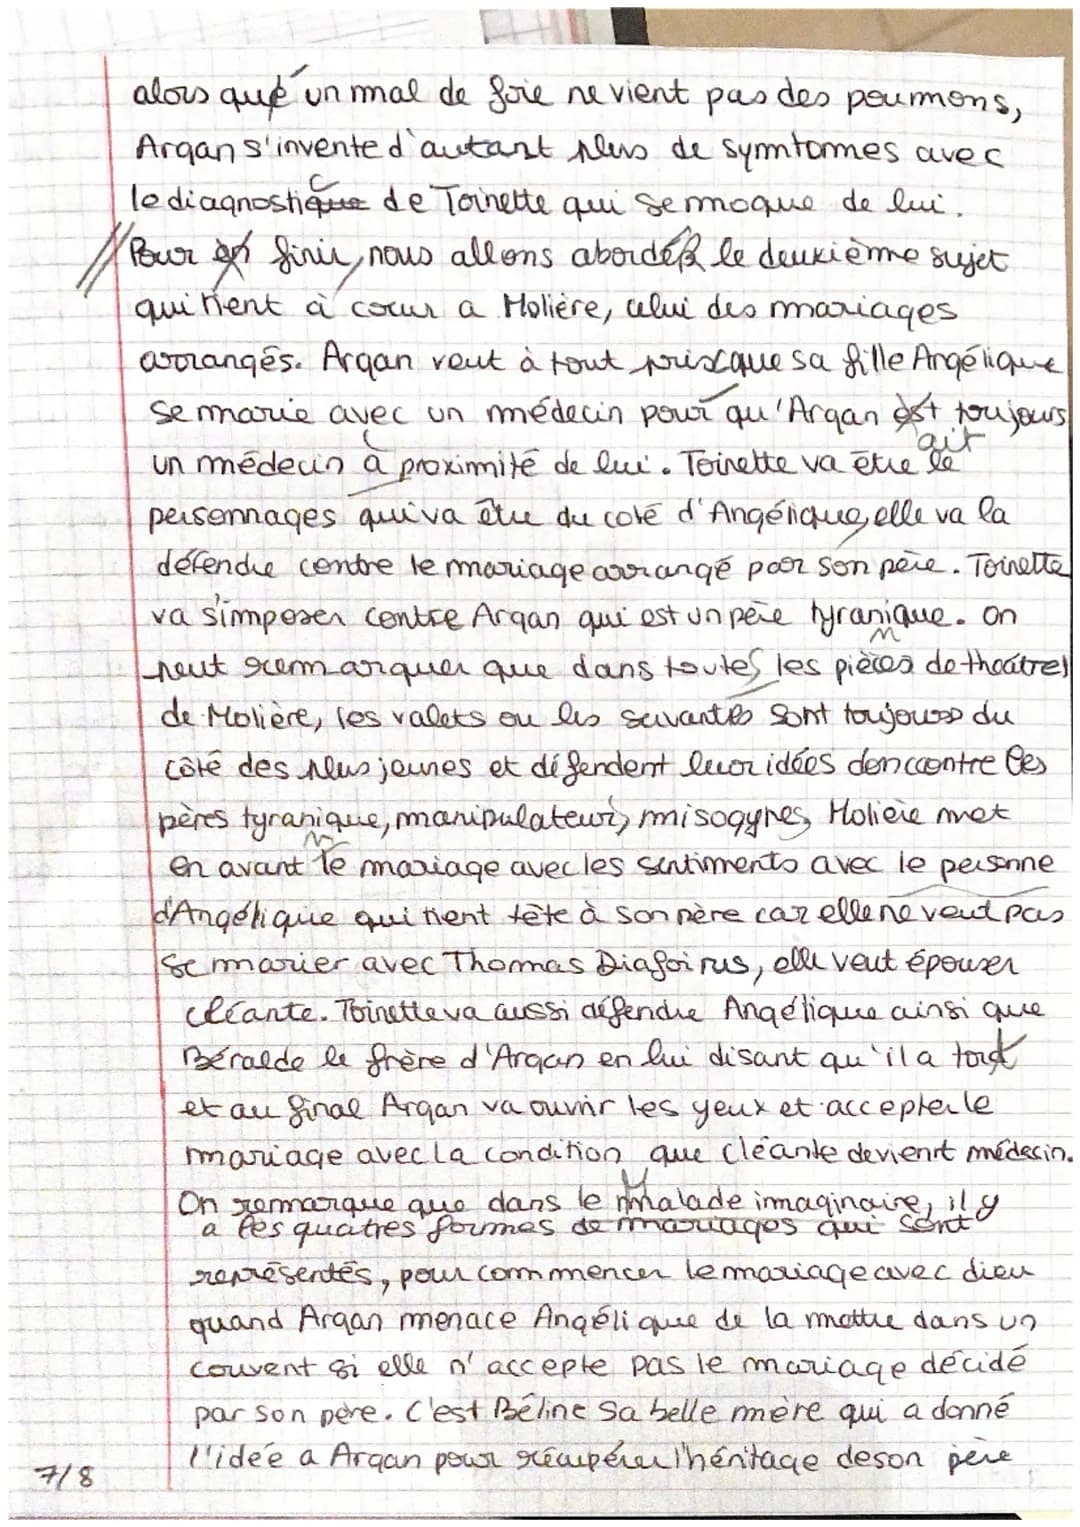 alors que un mal de foie ne vient pas des poummons,
Argan s'invente d'autant plus de symtomes avec
le diagnostique de Toinette qui se moque de lui.
// Pour en finir, nous allons aborder le deuxième sujet
qui tient à cœur a Molière, celui des mariages
arrangés. Argan veut à tout prix que sa fille Angélique
se marie avec un médecin pour qu'Argan est toujours
ait
un médecin à proximité de lui. Toinette va être le
personnages qui va être du coté d'Angélique, elle va la
défendre contre le mariage arrangé par son père. Toinette
va s'imposer contre Argan qui est un père tyranique. On
n
peut remarquer que dans toutes les pièces de théatres
de Molière, les valets ou les servantes sont toujours du
côté des plus jeunes et défendent leur idées contre les
pères tyranique, manipulateur, misogynes, Molière met
n
en avant le mariage avec les sentiments avec le personne
d'Angélique qui tient tête à son père car elle ne veut pas
se marier avec Thomas Diafoirus, elle veut épouser
cléante. Toinette va aussi défendre Angélique ainsi que
Béralde le frère d'Argan en lui disant qu'il a tord
et au final Argan va ouvrir les yeux et accepter le
mariage avec la condition que Cléante devient médecin.
M
On remarque que dans le malade imaginaire, il y
a les quatres formes de mariages qui sont
représentés, pour commencer le mariage avec dieu
quand Argan menace Angélique de la mettre dans un
couvent si elle n'accepte pas le mariage décidé
par son père. C'est Béline sa belle mère qui a donné
l'idée a Argan pour récupérer l'héritage de son père
7/8